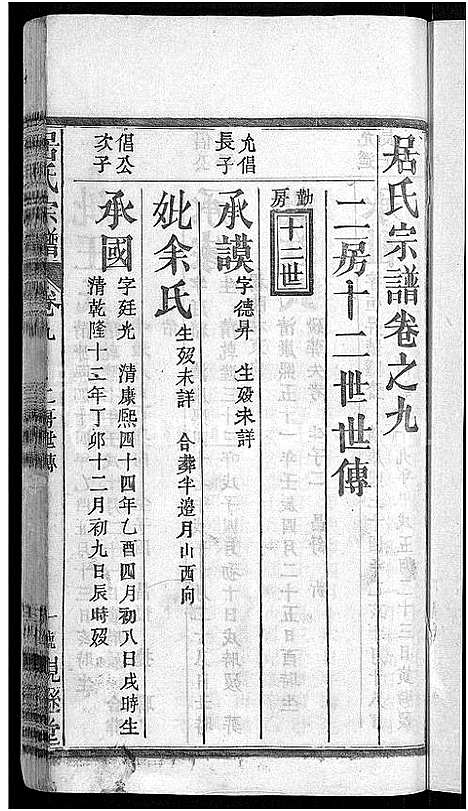 居氏宗譜卷之九
二房十二世世傳
勤房
十二世
允倡長子
承謨 字德昇 生歿未詳
妣余氏 生歿未詳 合葬半邉月山西向
倡公次子
承國 字廷光 清康熙四十四年乙酉四月初八日戌時生
清乾隆十二年丁卯十二月初九日辰時歿
居氏宗譜 卷九 二房世傳